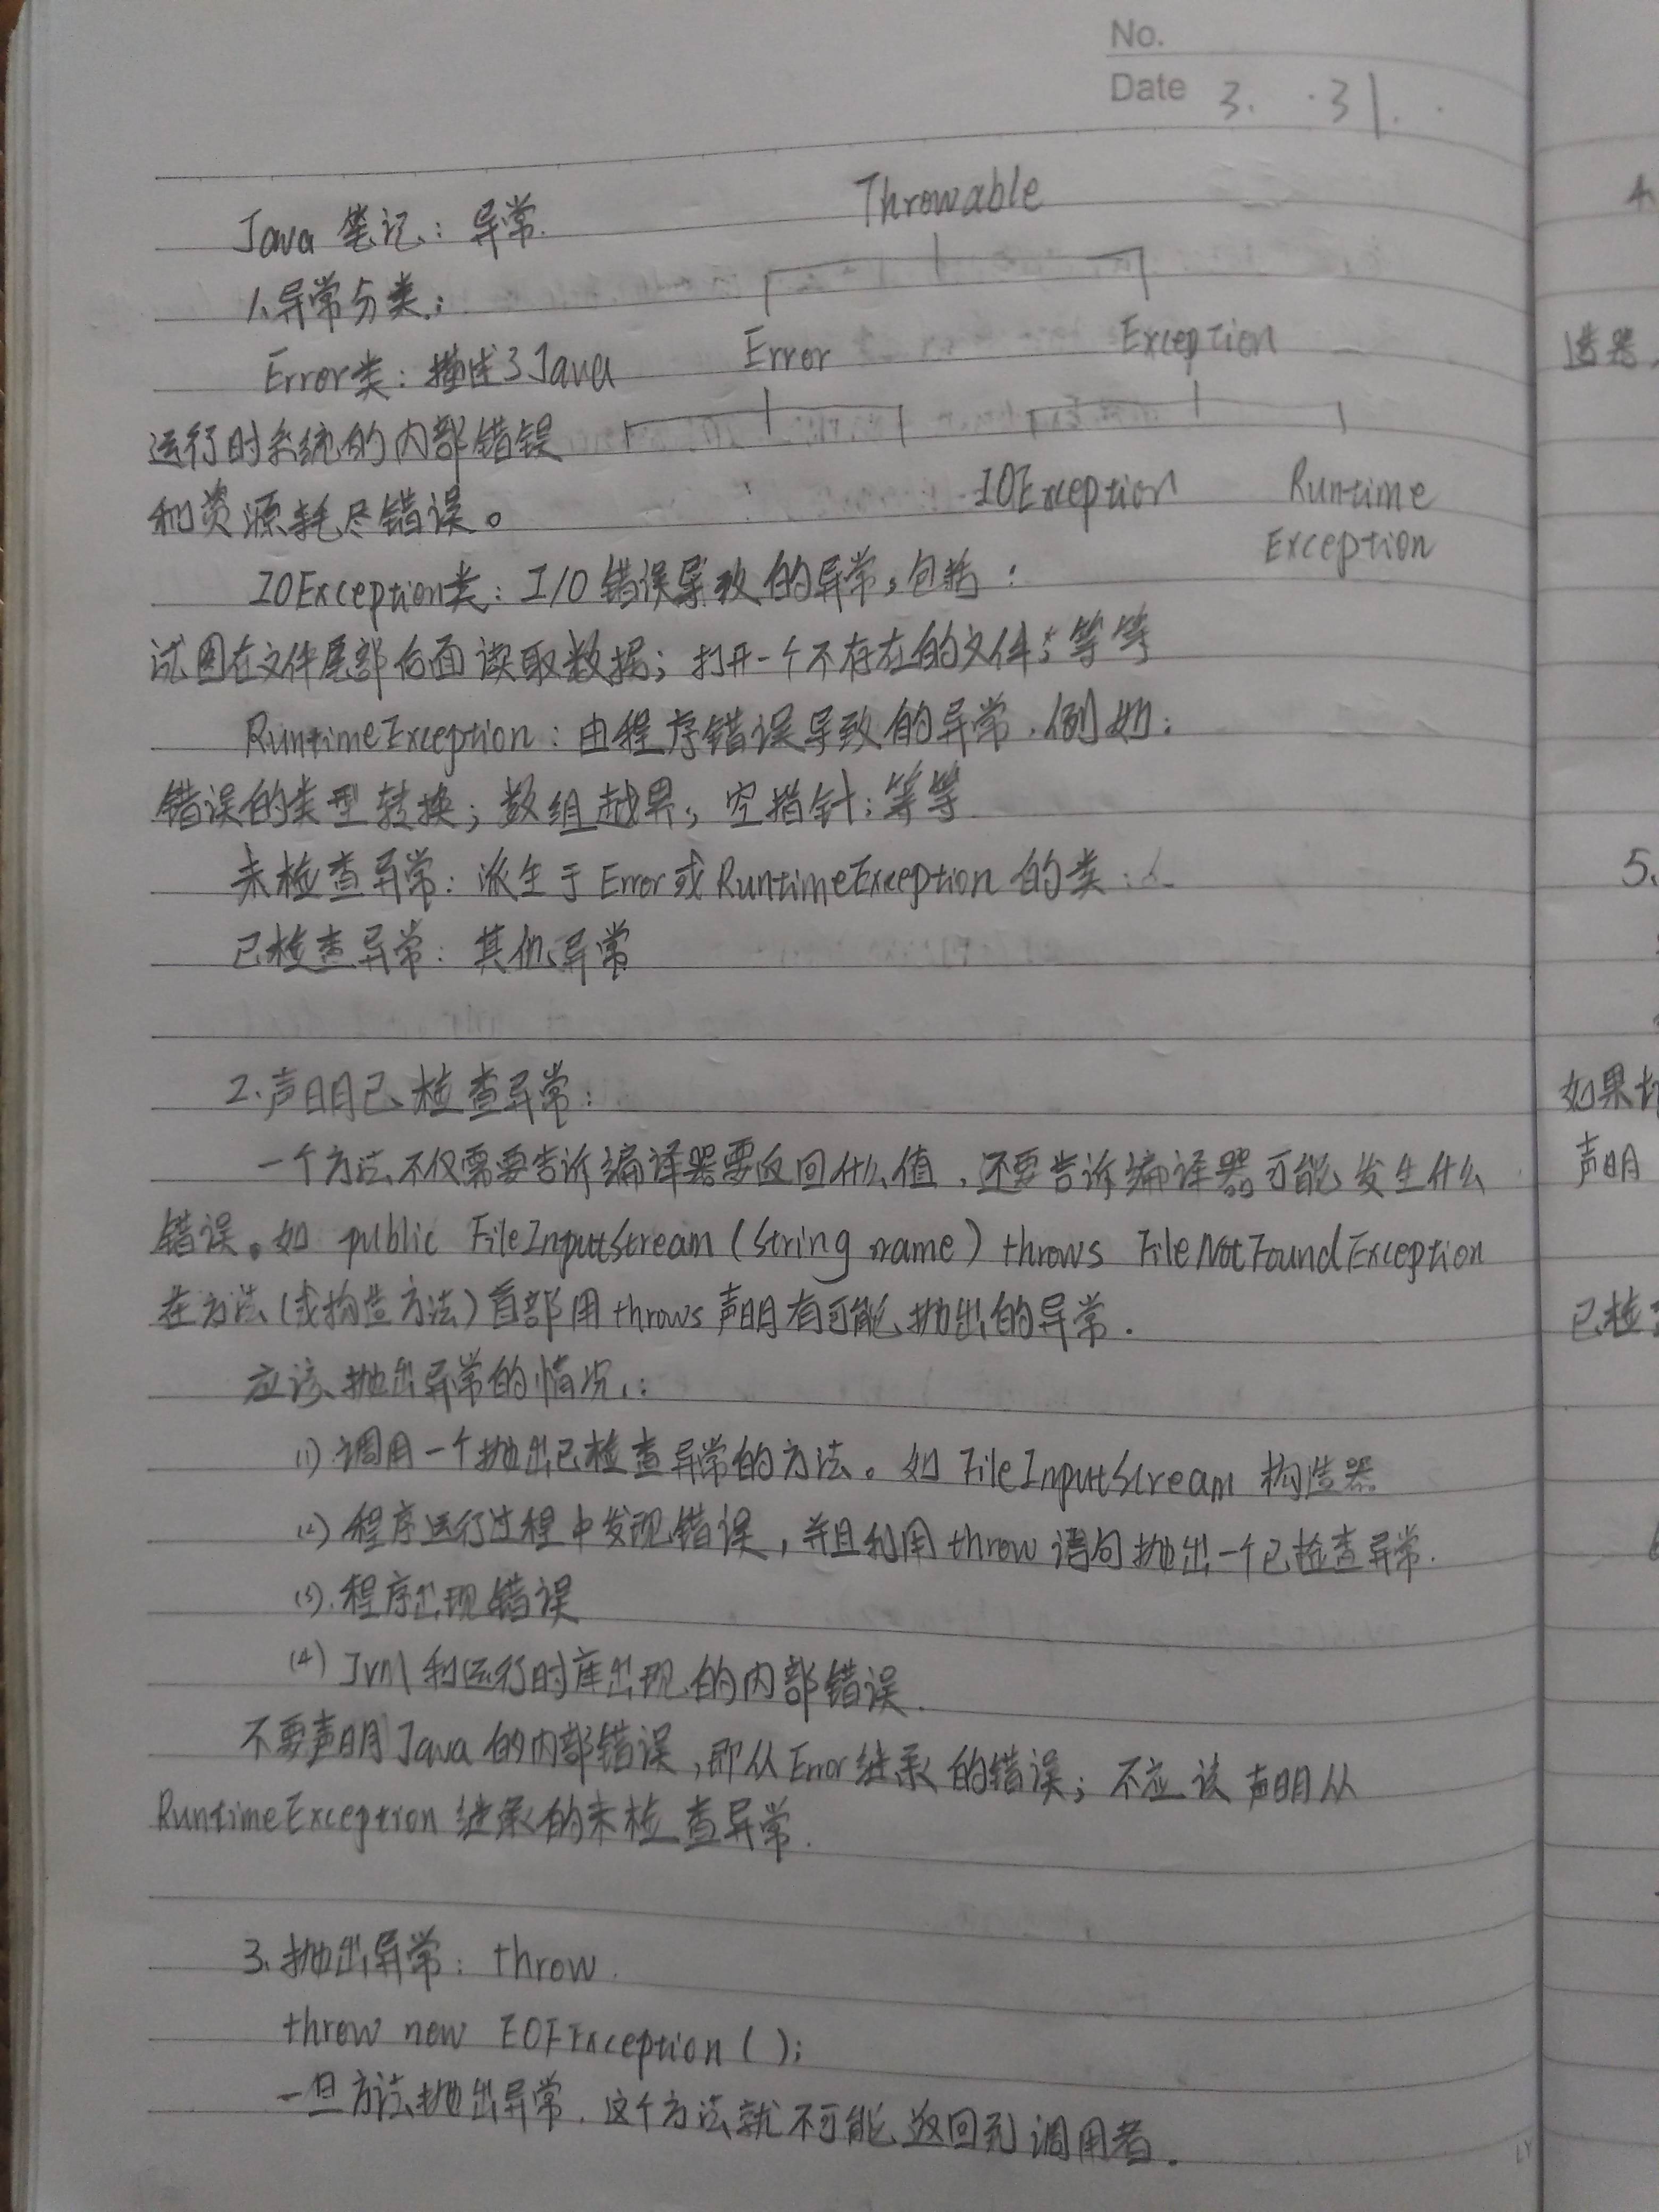 No.
Date 3. ·31.
Throwable
Java 笔记：异常.
1、异常分类：
Error Exception
Error类：描述了Java
运行时系统的内部错误
IOException Runtime
Exception
和资源耗尽错误。
IOException类：I/O 错误导致的异常，包括：
试图在文件尾部后面读取数据；打开一个不存在的文件；等等
RuntimeException：由程序错误导致的异常.例如：
错误的类型转换；数组越界；空指针；等等
未检查异常：派生于 Error或RuntimeException 的类
已检查异常：其他异常
2、声明已检查异常：
一个方法不仅需要告诉编译器要返回什么值，还要告诉编译器可能发生什么
错误。如 public FileInputStream (String name) throws FileNotFoundException
在方法(或构造方法)首部用throws声明有可能抛出的异常.
应该抛出异常的情况：
(1) 调用一个抛出已检查异常的方法。如 FileInputStream 构造器
(2) 程序运行过程中发现错误，并且利用 throw 语句抛出一个已检查异常.
(3).程序出现错误
(4) JVM和运行时库出现的内部错误.
不要声明Java的内部错误，即从Error继承的错误；不应该声明从
RuntimeException 继承的未检查异常.
3、抛出异常：throw.
throw new EOFException ( );
一旦方法抛出异常，这个方法就不可能返回到调用者.
4、
造器
5、
如果
声明
已检